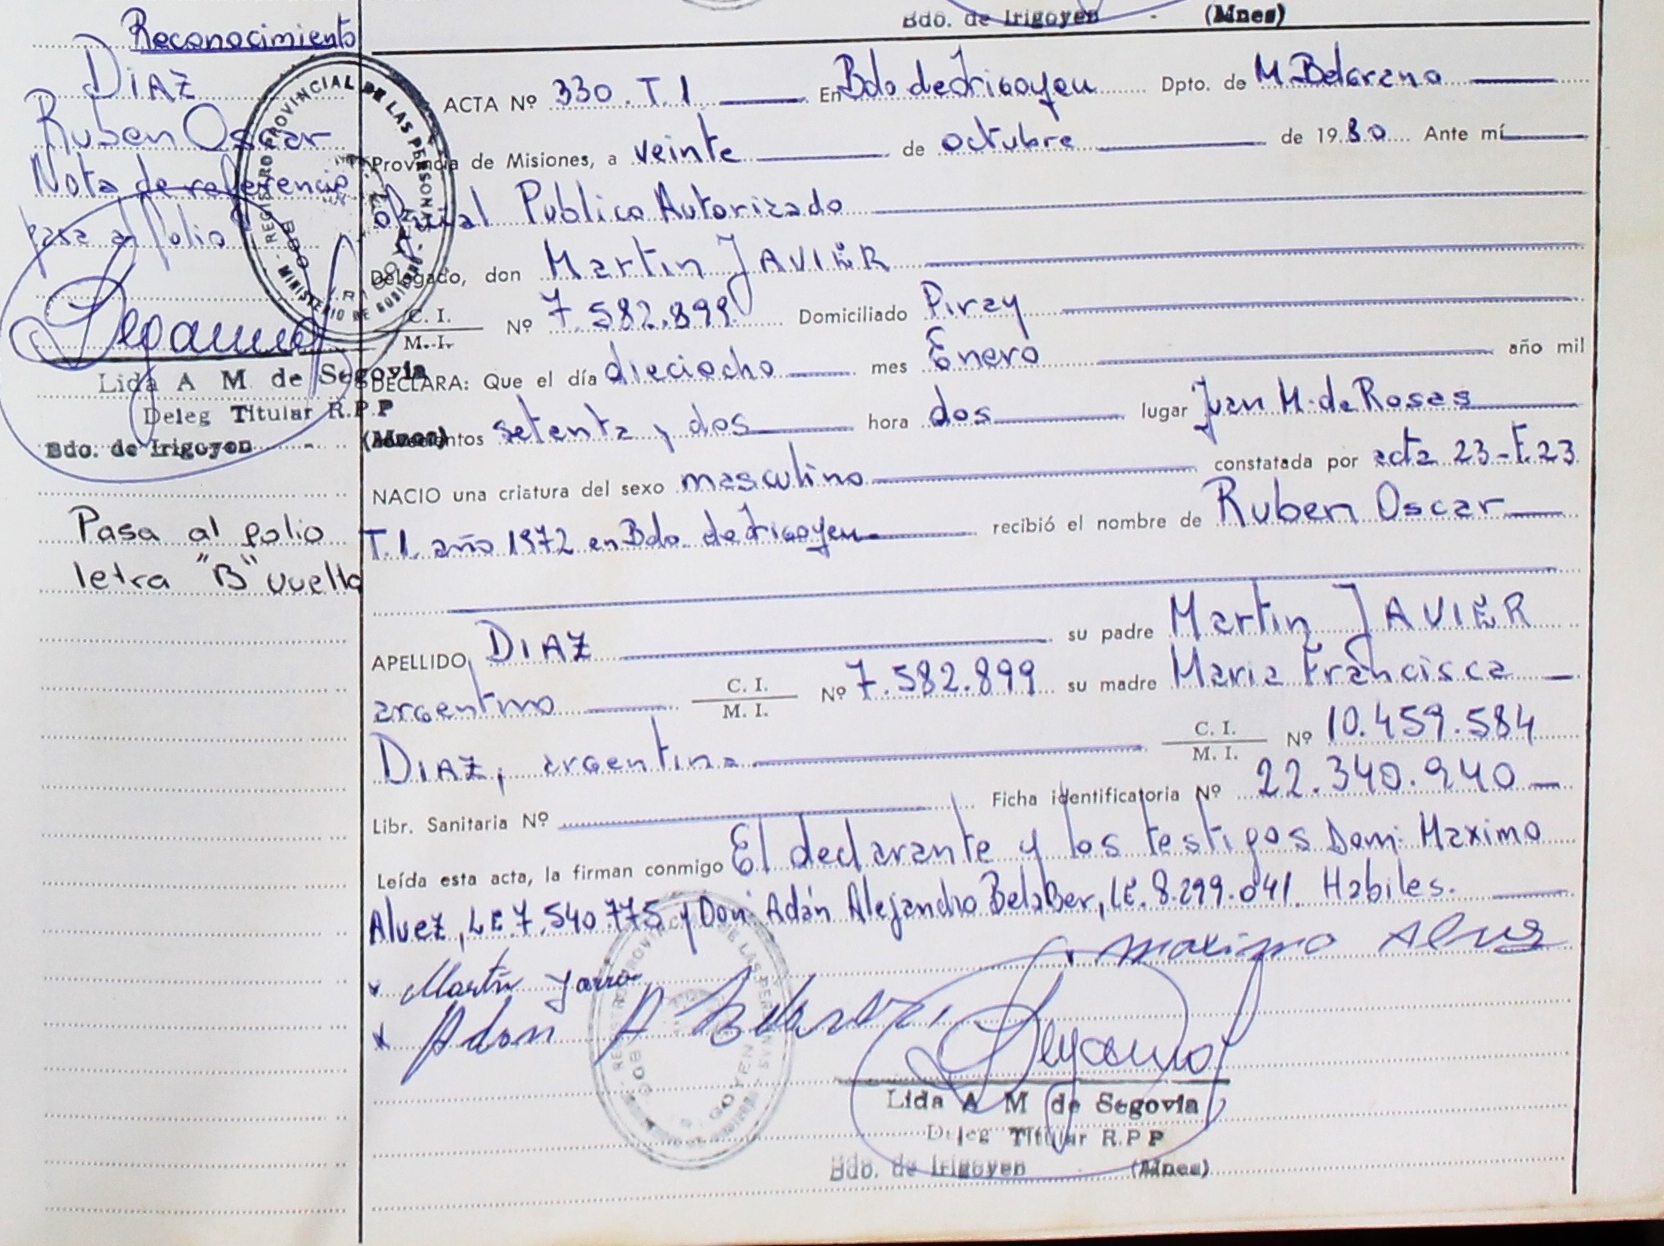 Bdo. de Irigoyen - (Mnes)
Reconocimiento
DIAZ
Ruben Oscar
Nota de referencia
pasa al folio
REGISTRO PROVINCIAL DE LAS PERSONAS
MINISTERIO DE GOBIERNO
Lida A M de Segovia
Deleg Titular R.P.P
Bdo. de Irigoyen - (Mnes)
Pasa al folio
letra "B" vuelta
ACTA Nº 330. T. I En Bdo de Irigoyen Dpto. de M. Belgrano
Provincia de Misiones, a veinte de octubre de 1980 Ante mí
Oficial Publico Autorizado
Delegado, don Martin JAVIER
C. I. / M. I. Nº 7.582.899 Domiciliado Piray
DECLARA: Que el día dieciocho mes Enero año mil
novecientos setenta y dos hora dos lugar Juan M. de Rosas
NACIO una criatura del sexo masculino constatada por acta 23-F.23
T.I. año 1972 en Bdo. de Irigoyen recibió el nombre de Ruben Oscar
APELLIDO DIAZ su padre Martin JAVIER
argentino C. I. / M. I. Nº 7.582.899 su madre Maria Francisca
DIAZ, argentina C. I. / M. I. Nº 10.459.584
Libr. Sanitaria Nº Ficha identificatoria Nº 22.340.940
Leída esta acta, la firman conmigo El declarante y los testigos Don: Maximo
Alvez, LE.7.540.775 y Don: Adán Alejandro Belaber, LE. 8.299.041. Habiles.
x Maximo Alves
x Martin
x Adan A
Lida A M de Segovia
Deleg Titular R.P P
Bdo. de Irigoyen (Mnes)